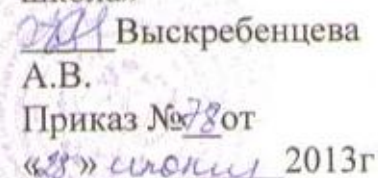 Выскребенцева
А.В.
Приказ №78от
«28» июня 2013г